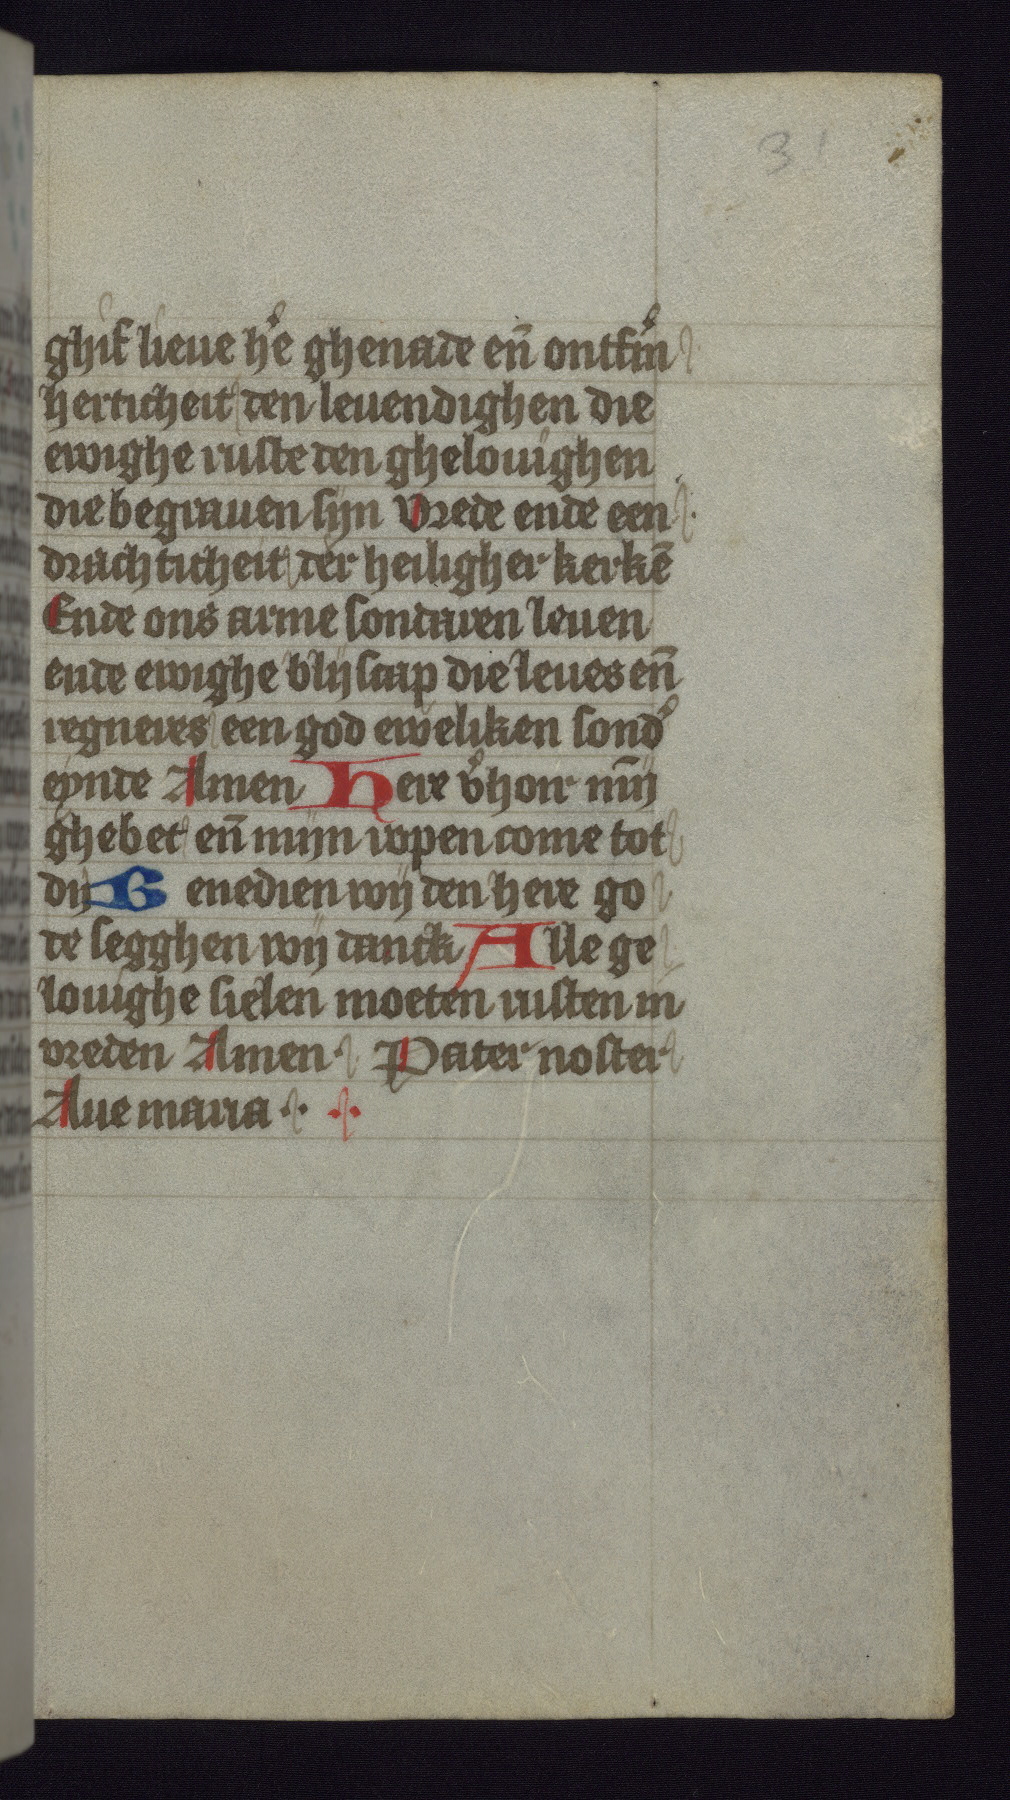 31
ghif lieue h'e ghenade en̄ ontf'm
herticheit den leuendighen die
ewighe ruste den ghelouighen
die begrauen sijn Vrede ende een
drachticheit der heiligher kerkē
Ende ons arme sondaren leuen
ende ewighe blijscap die leues en̄
regneres een god eweliken sond'
eynde Amen Here v'hoir mīn
ghebet en̄ mijn ropen come tot
dij Benedien wij den here go
de segghen wij danck Alle ge
louighe sielen moeten rusten in
vreden Amen Pater noster
Aue maria